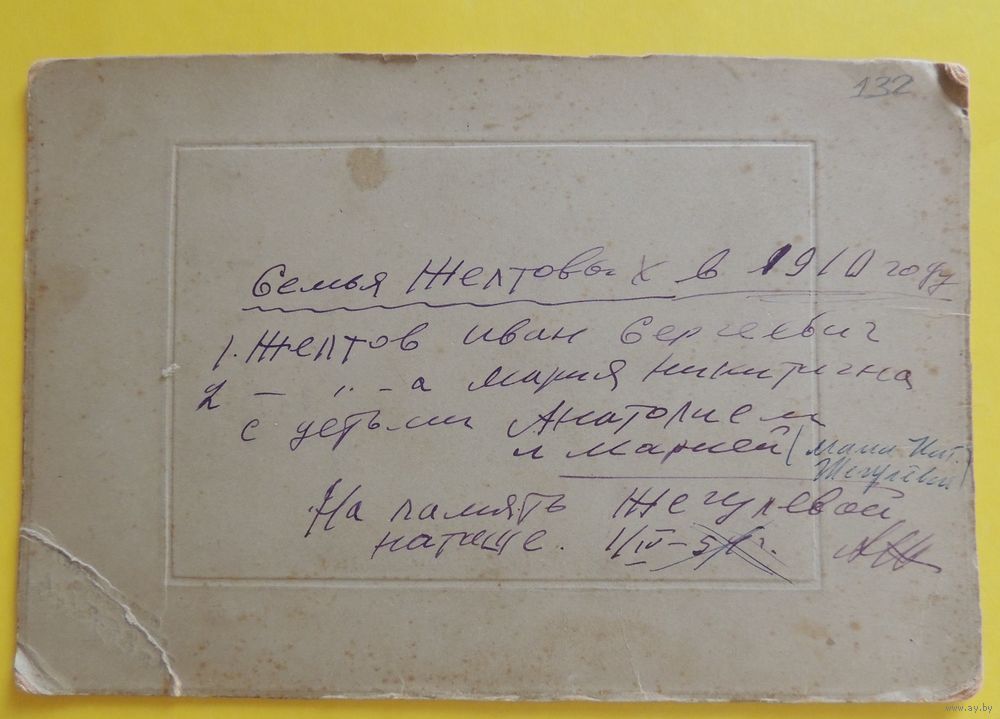 132
Семья Желтовых в 1910 году
1. Желтов Иван Сергеевич
2 — " — а Мария Никитична
с детьми Анатолием
и Марией (мама
Жегулёвой)
На память Жегулевой
Наташе. 1/IV-51г.
www.ay.by